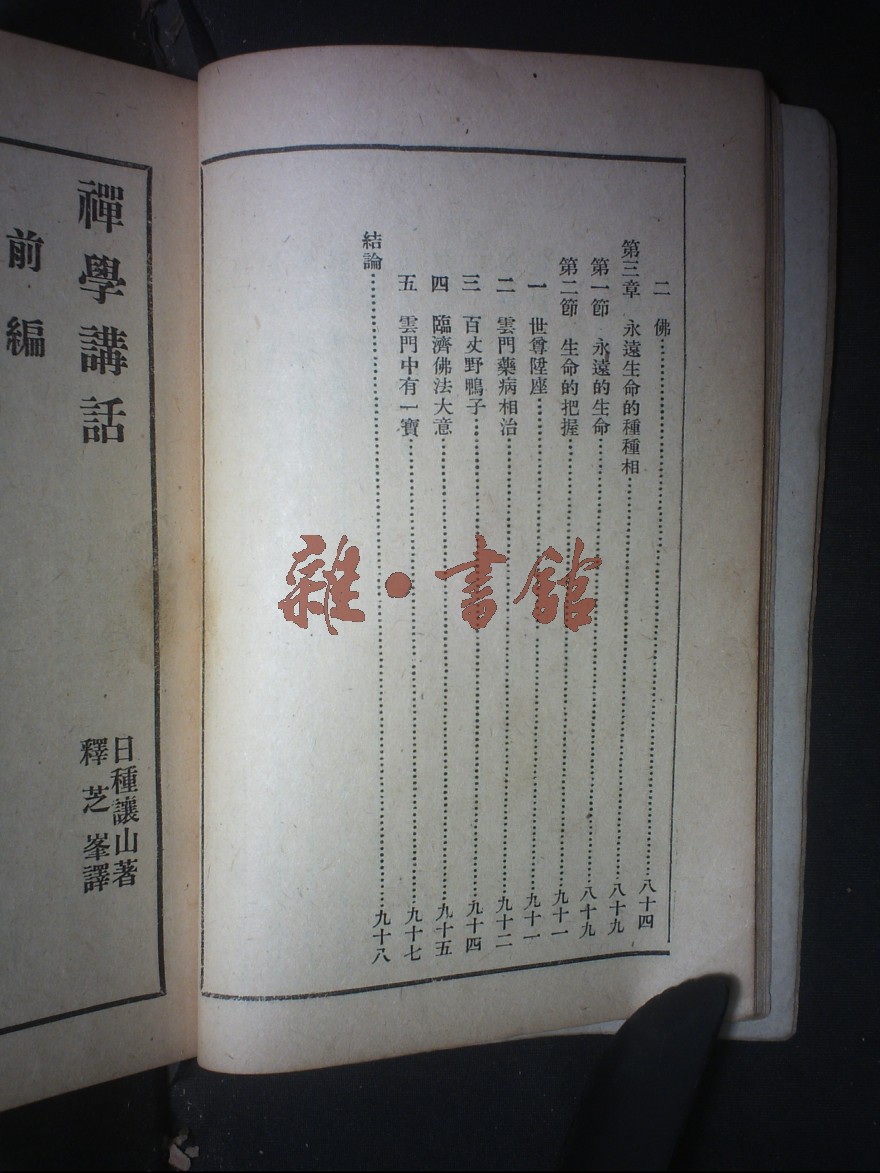 二　佛……八十四
第三章　永遠生命的種種相……八十九
第一節　永遠的生命……八十九
第二節　生命的把握……九十一
一　世尊陞座……九十一
二　雲門藥病相治……九十二
三　百丈野鴨子……九十四
四　臨濟佛法大意……九十五
五　雲門中有一寶……九十七
結論……九十八
禪學講話
日種讓山著
釋芝峯譯
前編
雜•書館